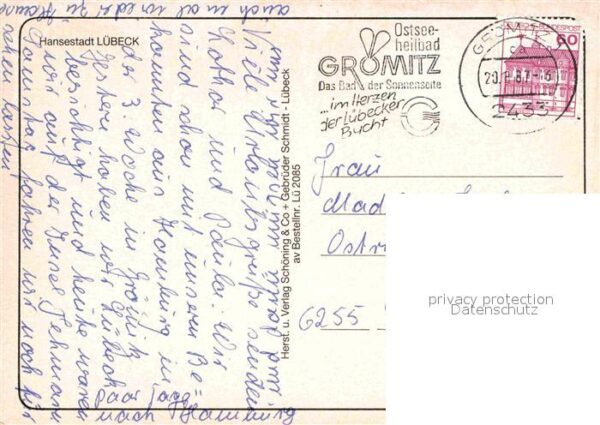 Hansestadt LÜBECK
Ostsee-
heilbad
GRÖMITZ
Das Bad der Sonnenseite
...im Herzen
der Lübecker
Bucht
GRÖMITZ
2433
60
Herst. u. Verlag Schöning & Co + Gebrüder Schmidt - Lübeck
av Bestellnr. Lü 2085
Frau
6255
Viele Urlaubsgrüße senden
Lothar und Paula. Wir
sind schon mit unserem Be=
kannten aus Hamburg in
der 3 Woche in Grömitz
Gestern haben wir Lübeck
besichtigt und heute waren
wir auf der Insel Fehmarn
Samstag fahren wir noch für
paar Tage
nach Hamburg
auch mal wieder zu Hause
sehen lassen
privacy protection
Datenschutz